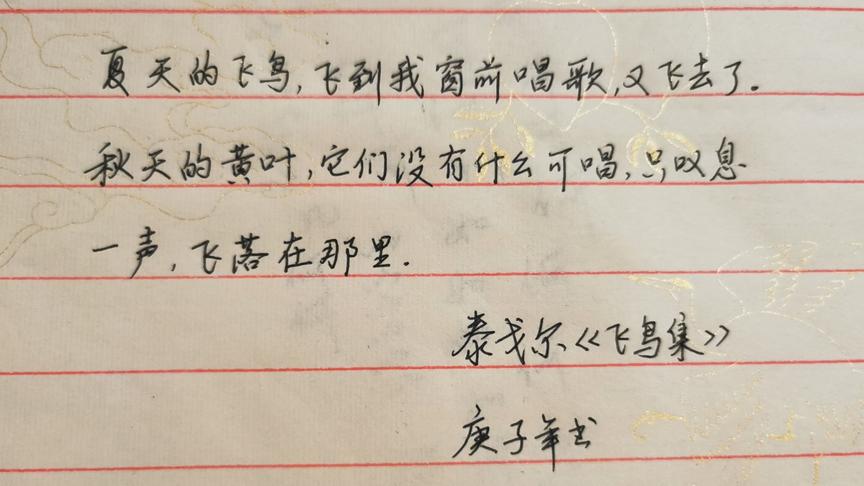 夏天的飞鸟,飞到我窗前唱歌,又飞去了.
秋天的黄叶,它们没有什么可唱,只叹息
一声,飞落在那里.
泰戈尔《飞鸟集》
庚子年书